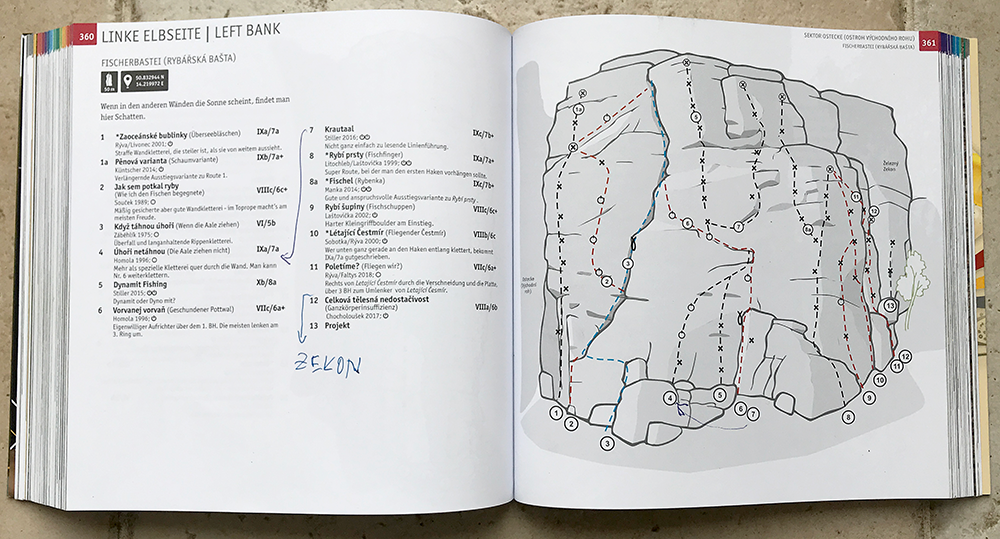 360
LINKE ELBSEITE | LEFT BANK
FISCHERBASTEI (RYBÁŘSKÁ BAŠTA)
50 m
50.832944 N
14.219972 E
Wenn in den anderen Wänden die Sonne scheint, findet man
hier Schatten.
1 *Zaoceánské bublinky (Überseebläschen) IXa/7a
Rýva/Livonec 2001;
Straffe Wandkletterei, die steiler ist, als sie von weitem aussieht.
1a Pěnová varianta (Schaumvariante) IXb/7a+
Küntscher 2014;
Verlängernde Ausstiegsvariante zu Route 1.
2 Jak sem potkal ryby VIIIc/6c+
(Wie ich den Fischen begegnete)
Souček 1989;
Mäßig gesicherte aber gute Wandkletterei - im Toprope macht's am
meisten Freude.
3 Když táhnou úhoři (Wenn die Aale ziehen) VI/5b
Zábéhlík 1975;
Überfall und langanhaltende Rippenkletterei.
4 Úhoři netáhnou (Die Aale ziehen nicht) IXa/7a
Homola 1996;
Mehr als spezielle Kletterei quer durch die Wand. Man kann
Nr. 6 weiterklettern.
5 Dynamit Fishing Xb/8a
Stiller 2015;
Dynamit oder Dyno mit?
6 Vorvanej vorvaň (Geschundener Pottwal) VIIc/6a+
Homola 1996;
Eigenwilliger Aufrichter über dem 1. BH. Die meisten lenken am
3. Ring um.
7 Krautaal IXc/7b+
Stiller 2016;
Nicht ganz einfach zu lesende Linienführung.
8 *Rybí prsty (Fischfinger) IXa/7a+
Litochleb/Laštovička 1999;
Super Route, bei der man den ersten Haken vorhängen sollte.
8a *Fischel (Rybenka) IXc/7b+
Manka 2014;
Gute und anspruchsvolle Ausstiegsvariante zu Rybí prsty.
9 Rybí šupiny (Fischschuppen) VIIIc/6c+
Laštovička 2002;
Harter Kleingriffboulder am Einstieg.
10 *Létající Čestmír (Fliegender Čestmír) VIIIb/6c
Sobotka/Rýva 2000;
Wer unten ganz gerade an den Haken entlang klettert, bekommt
IXa/7a gutgeschrieben.
11 Poletíme? (Fliegen wir?) VIIc/6a+
Rýva/Faltys 2018;
Rechts von Letající Čestmír durch die Verschneidung und die Platte,
über 3 BH zum Umlenker von Letající Česmír.
12 Celková tělesná nedostačivost VIIIa/6b
(Ganzkörperinsuffizienz)
Chocholoušek 2017;
13 Projekt
ZEKON
SEKTOR OSTECKE (OSTROH VÝCHODNÍHO ROHU)
FISCHERBASTEI (RYBÁŘSKÁ BAŠTA)
361
1a
5
11
12
6
7
8a
3
2
13
Železný
Zekon
Ostecke
1
2
3
4
5
6
7
8
9
10
11
12